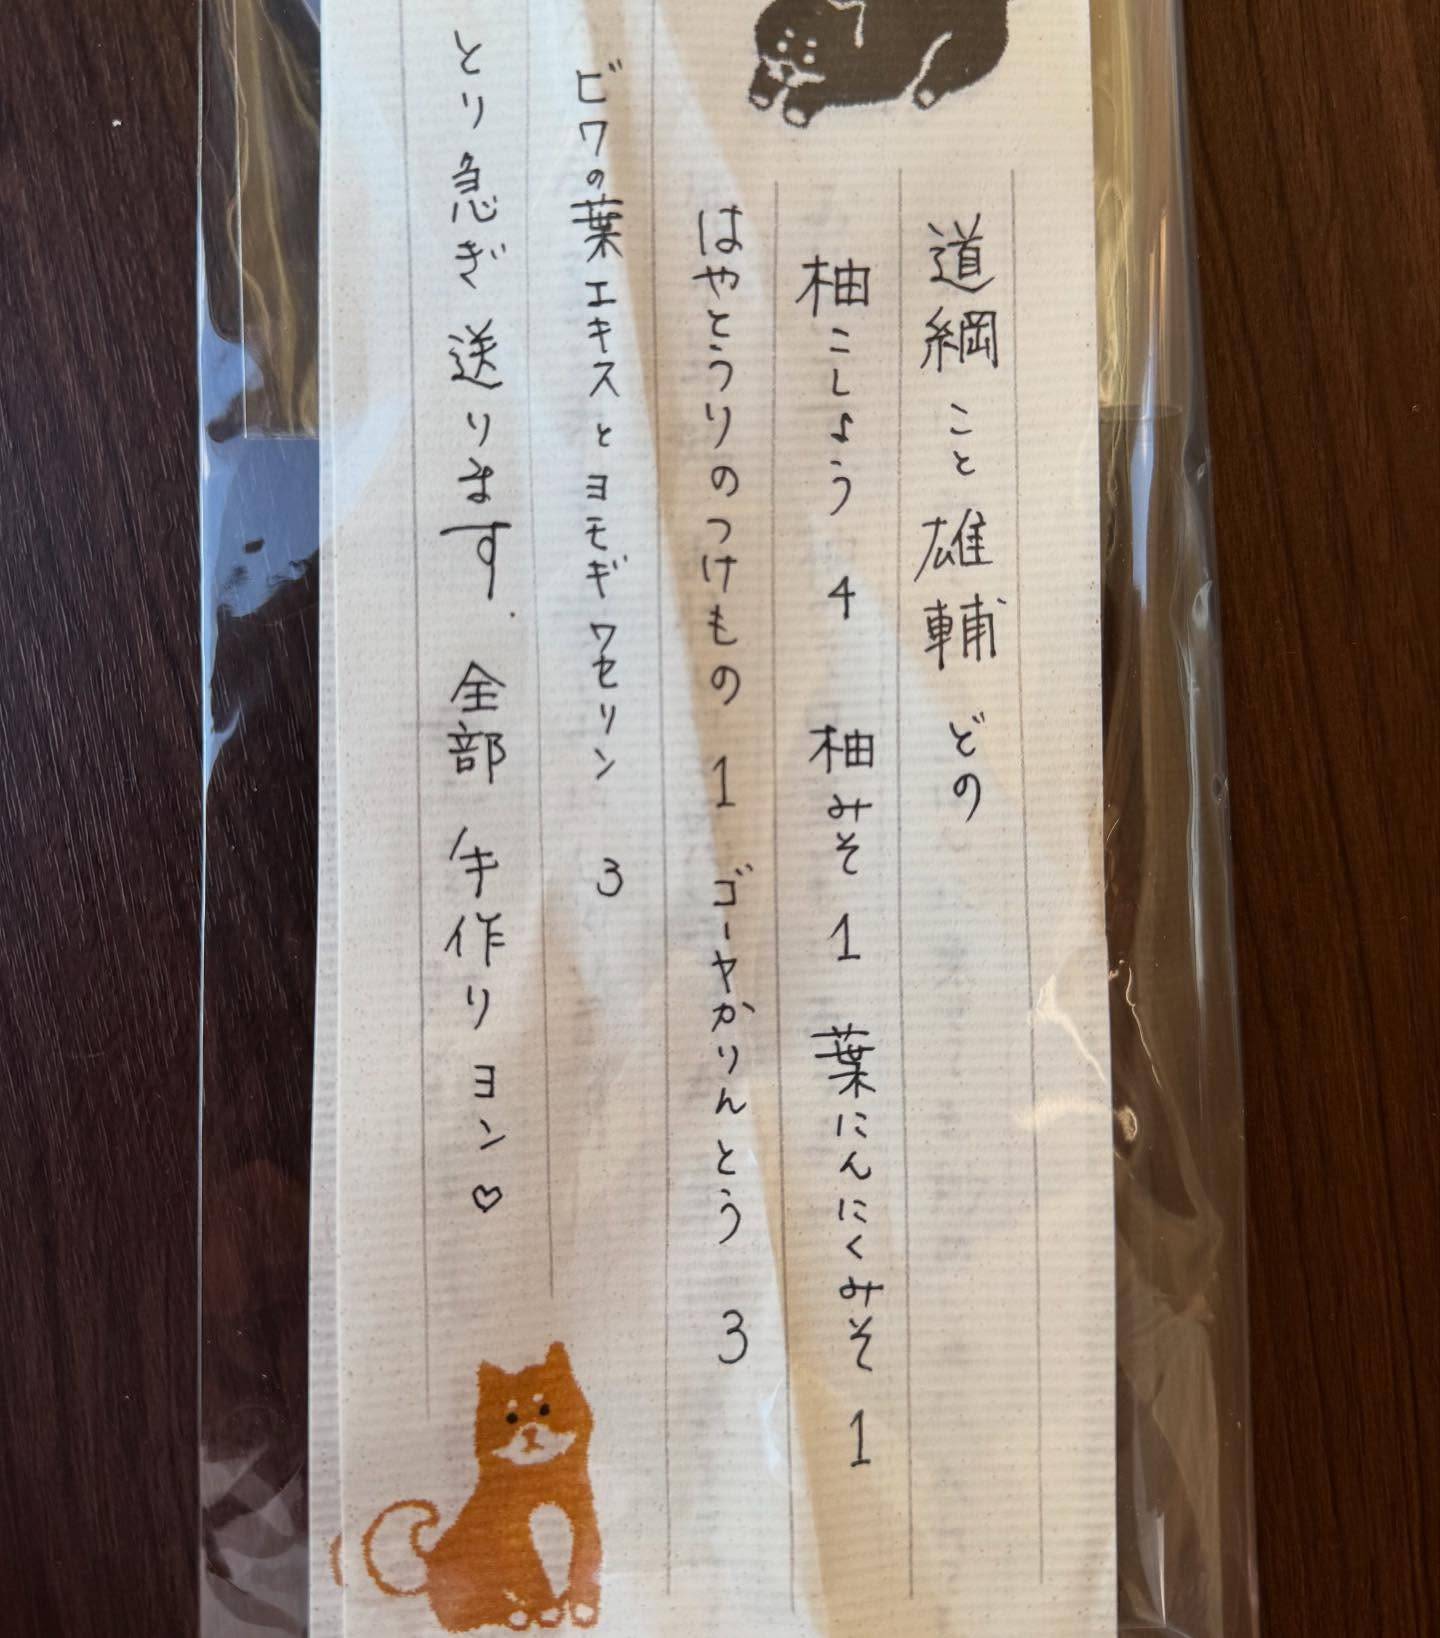 道綱こと雄輔どの
柚こしょう 4 柚みそ 1 葉にんにくみそ 1
はやとうりのつけもの 1 ゴーヤかりんとう 3
ビワの葉エキスとヨモギワセリン 3
とり急ぎ送ります. 全部手作りヨン♡